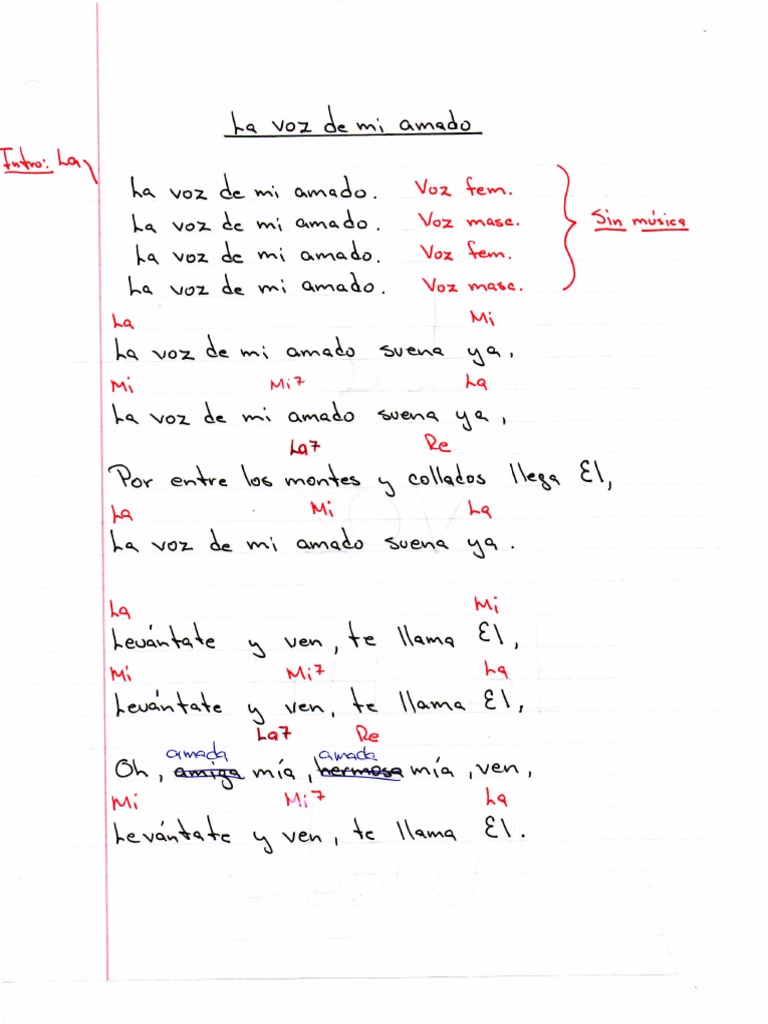 La voz de mi amado
Intro: La
La voz de mi amado. Voz fem.
La voz de mi amado. Voz masc.
La voz de mi amado. Voz fem.
La voz de mi amado. Voz masc.
Sin música
La Mi
La voz de mi amado suena ya,
Mi Mi7 La
La voz de mi amado suena ya,
La7 Re
Por entre los montes y collados llega El,
La Mi La
La voz de mi amado suena ya.
La Mi
Levántate y ven, te llama El,
Mi Mi7 La
Levántate y ven, te llama El,
La7 Re
amada amada
Oh, amiga mía, hermosa mía, ven,
Mi Mi7 La
Levántate y ven, te llama El.